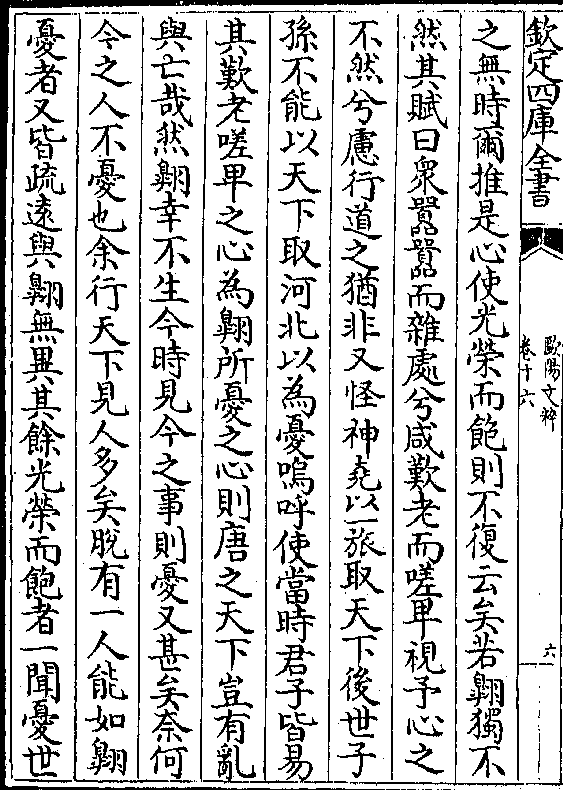 欽定四庫全書
歐陽文粹
卷十六
六
之無時爾推是心使光榮而飽則不復云矣若翺獨不
然其賦曰衆囂囂而雜處兮咸歎老而嗟卑視予心之
不然兮慮行道之猶非又怪神堯以一旅取天下後世子
孫不能以天下取河北以為憂嗚呼使當時君子皆易
其歎老嗟卑之心為翺所憂之心則唐之天下豈有亂
與亡哉然翺幸不生今時見今之事則憂又甚矣奈何
今之人不憂也余行天下見人多矣脫有一人能如翺
憂者又皆疏遠與翺無異其餘光榮而飽者一聞憂世